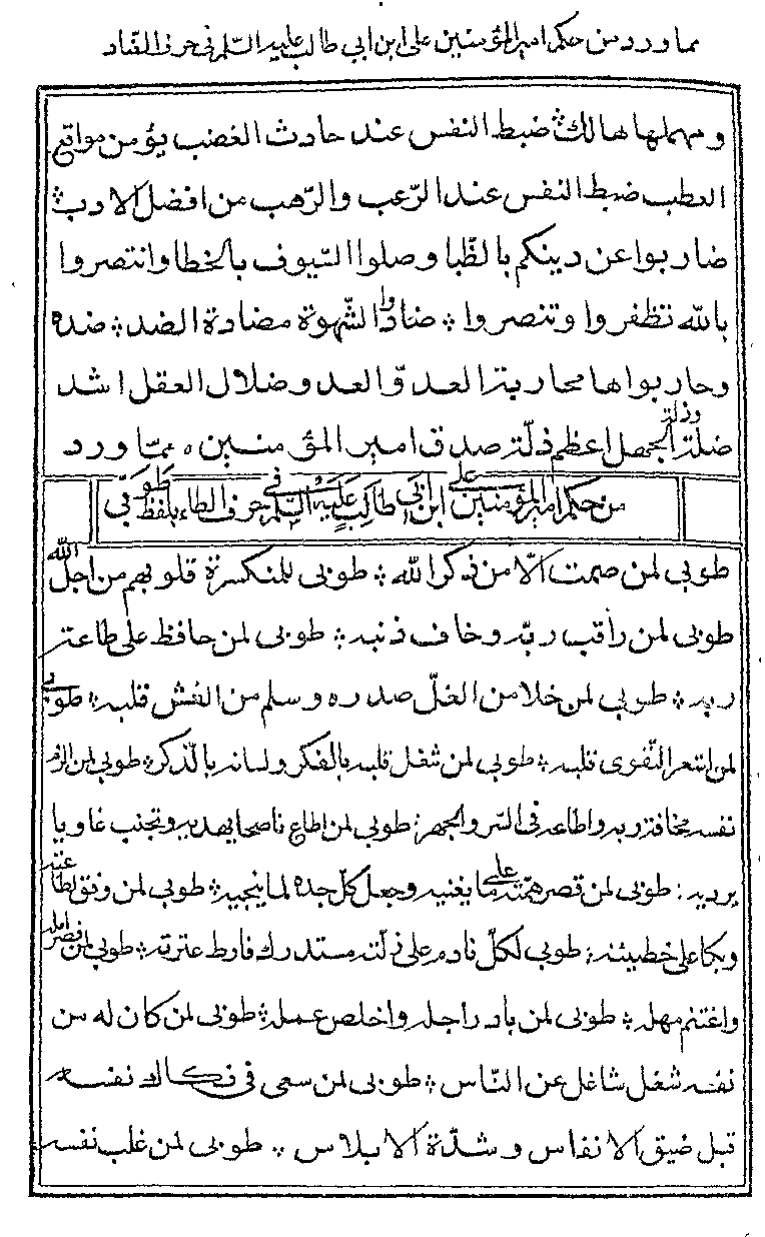 مما ورد من حكم امير المؤمنين على ابن ابي طالب عليه السّلم فى حرف الضّاد
ومهملها هالك ؞ ضبط النفس عند حادث الغضب يؤمن مواقع
العطب ضبط النفس عند الرّغب والرّهب من افضل الادب ؞
ضاربوا عن دينكم بالظّبا وصلوا السّيوف بالخطا وانتصروا
بالله تظفروا وتنصروا ؞ ضادّوا الشّهوة مضادة الضد ؞ ضده
وحاربوها محاربة العدوّ العد وضلال العقل اشد
ضلة وذلة الجهل اعظم ذلّة صدق امير المؤمنين ، ممّا ورد
من حكم امير المؤمنين على ابن ابى طالب عليه السّلم فى حرف الطاء بلفظ طوبى
طوبى لمن صمت الّا من ذكر الله ؞ طوبى للمنكسرة قلوبهم من اجل الله
طوبى لمن راقب ربّه وخاف ذنبه ؞ طوبى لمن حافظ على طاعة
ربه ؞ طوبى لمن خلا من الغلّ صدره وسلم من الغش قلبه ؞ طوبى
لمن استعر التّقوى قلبه ؞ طوبى لمن شغل قلبه بالفكر ولسانه بالذّكر ؞ طوبى لمن الزم
نفسه مخافة ربه واطاعه فى السّر والجهر ؞ طوبى لمن اطاع ناصحا يهديه وتجنب غاويا
يرديه ؞ طوبى لمن قصر همّته على ما يغنيه وجعل كلّ جده لما ينجيه ؞ طوبى لمن وفق لطاعته
وبكا على خطيئته ؞ طوبى لكلّ نادم على زلته مستدرك فارط عثرته ؞ طوبى لمن قصر امله
واغتنم مهله ؞ طوبى لمن بادر اجله واخلص عمله ؞ طوبى لمن كان له من
نفسه شغل شاغل عن النّاس ؞ طوبى لمن سعى فى فكاك نفسه
قبل ضيق الانفاس وشدّة الابلاس ؞ طوبى لمن غلب نفسه